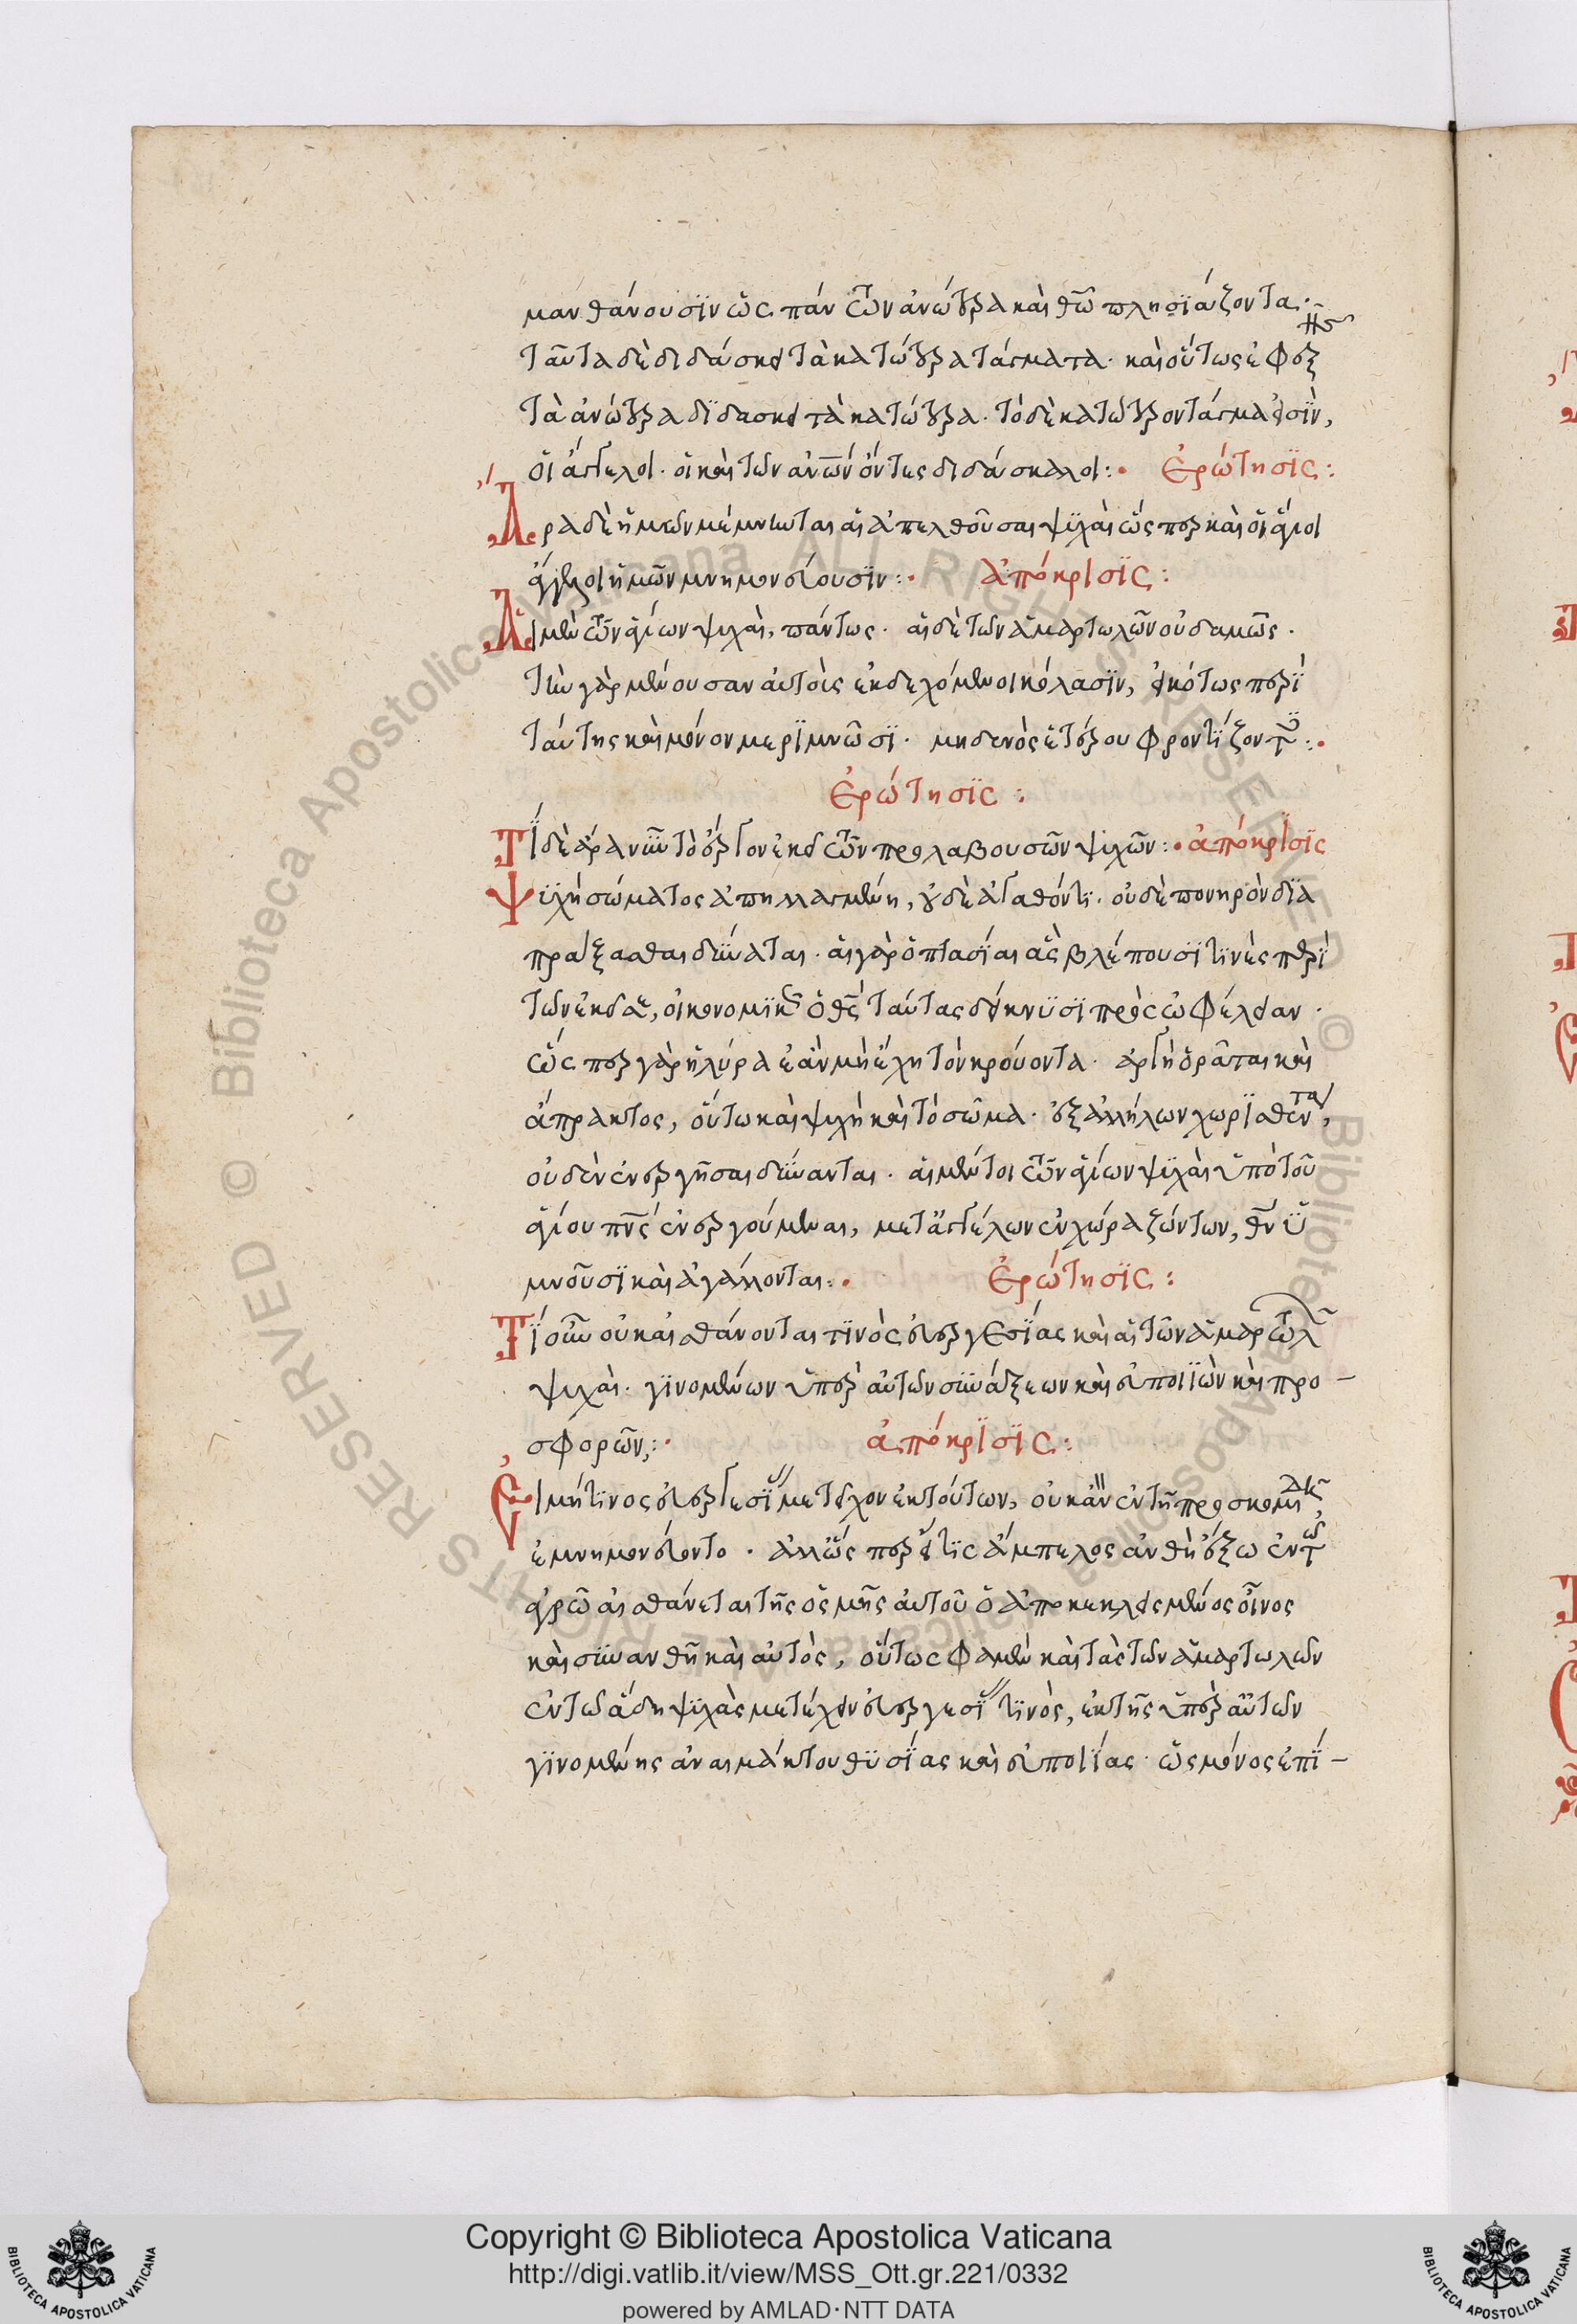 μανθάνουσϊν ὥς πάν τῶν ἀνώτερα καὶ θῶ πλησϊάζοντα·
ταῦτα δὲ διδάσκει τὰ κατώτερα τάγματα· καὶ οὕτως ἐφεξῆς
τὰ ἀνώτερα δϊδασκει τὰ κατώτερα· τὸ δὲ κατώτερον τάγμα εἰσϊν,
οἵ ἄγγελοι· οἵ καὶ των ἀνῶν ὄντες διδάσκαλοι:· Ἐρώτησϊς:
Αρα δὲ ἥμων μέμνηνται αἵ ἀπελθοῦσαι ψϋχαὶ ὥς περ καὶ οἵ ἅγιοι
ἄγγελοι ἥμῶν μνημονεύουσϊν:· ἀπόκρισϊς:
Αἵ μὲν τῶν ἁγίων ψυχαὶ, πάντως· αἵ δὲ των ἁμαρτωλῶν οὐδαμῶς.
τὴν γὰρ μένουσαν αὐτοὶς ἐκδεχόμενοι κόλασϊν, εἰκότως περῒ
ταύτης καὶ μόνον μερϊμνῶσϊ· μηδενὸς ἑτέρου φροντϊζοντες:·
Ἐρώτησϊς:
Τῒ δὲ ἄρα νῦν τὸ ἔργον ἐκεῖ τῶν προλαβουσῶν ψυχῶν:· ἀπόκρϊσϊς
Ψϋχὴ σώματος ἀπηλλαγμένη, οὐδὲ ἀγαθόν τι· οὐδὲ πονηρὸν δϊα
πράξασθαι δύναται· αἵ γὰρ ὀπτασΐαι ἃς βλέπουσϊ τϊνὲς περῒ
των ἐκεῖσε, οἰκονομϊκῶς ὁ θς ταύτας δείκνϋσϊ πρὸς ὠφέλειαν·
ὥς περ γὰρ ἥ λύρα ἐὰν μὴ ἔχη τὸν κρούοντα· ἀργὴ ὁρᾶται καὶ
ἄπρακτος, οὕτω καὶ ψυχὴ καὶ τὸ σῶμα· ἐξ ἀλλήλων χωρϊσθέντα,
οὐδὲν ἐνεργῆσαι δύνανται· αἵ μέντοι τῶν ἁγίων ψϋχαὶ ὑπὸ τοῦ
ἁγίου πνς ἐνεργούμεναι, μετ' ἀγγέλων ἐν χώρα ζώντων, θν ϋ
μνοῦσϊ καὶ ἀγάλλονται:· Ἐρώτησϊς:
Τΐ οὖν οὐκ αἰσθάνονται τϊνὸς εὐεργεσΐας καὶ αἵ τῶν ἁμαρτωλῶν
ψυχαὶ· γϊνομένων ὑπὲρ αὐτων συνάξεων καὶ εὐποιϊὼν καὶ προ-
σφορῶν;:· ἀπόκρϊσϊς:
Εἰ μή τϊνος εὐεργεσΐας μετεῖχον ἐκ τούτων, οὐκ ἂν ἐν τῆ προσκομιδῆ
ἐμνημονεύοντο· ἀλλ' ὥς περ εἴ τϊς ἄμπελος ἀνθὴ ἔξω ἐν τῶ
ἀγρῶ αἰσθάνεται τῆς ὀσμῆς αὐτοῦ ὁ ἀποκεκλεισμένος οἶνος
καὶ συνανθῆ καὶ αὐτὸς, οὕτως φαμὲν καὶ τὰς των ἁμαρτωλων
ἐν τω ἅδη ψϋχὰς μετέχειν εὐεργεσΐας τϊνὸς, ἐκ τῆς ὑπὲρ αὐτων
γϊνομένης ἀναιμάκτου θϋσΐας καὶ εὐποιΐας· ὥς μόνος ἐπΐ-
Copyright © Biblioteca Apostolica Vaticana
http://digi.vatlib.it/view/MSS_Ott.gr.221/0332
powered by AMLAD·NTT DATA